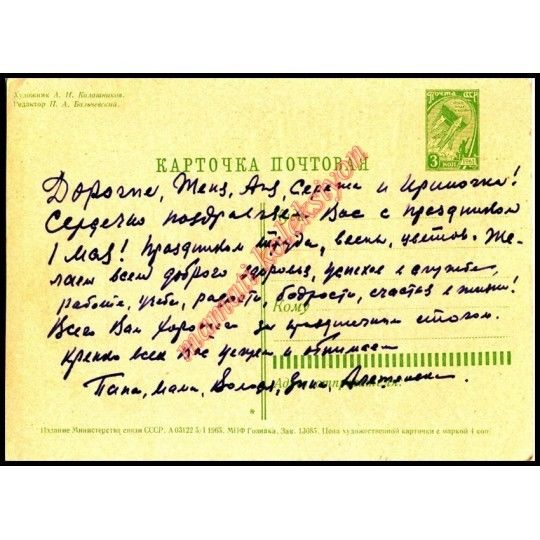 Художник А. И. Калашников.
Редактор П. А.
ПОЧТА СССР
3 КОП 1961
КАРТОЧКА ПОЧТОВАЯ
Дорогие, Женя, Аня, Сережа и Ириночка!
Сердечно поздравляем Вас с Праздником
1 мая! Праздником труда, весны, цветов. Же-
лаем всем доброго здоровья, успехов в службе,
работе, учебе, радости, бодрости, счастья в жизни!
Кому
Всего Вам хорошего за праздничным столом.
Крепко всех Вас целуем и обнимаем
Папа, мама, Володя,
mammut koleksiyon
Издание Министерства связи СССР. А 03122 5/I 1965. МПФ Гознака. Зак. 13085. Цена художественной карточки с маркой 4 коп.